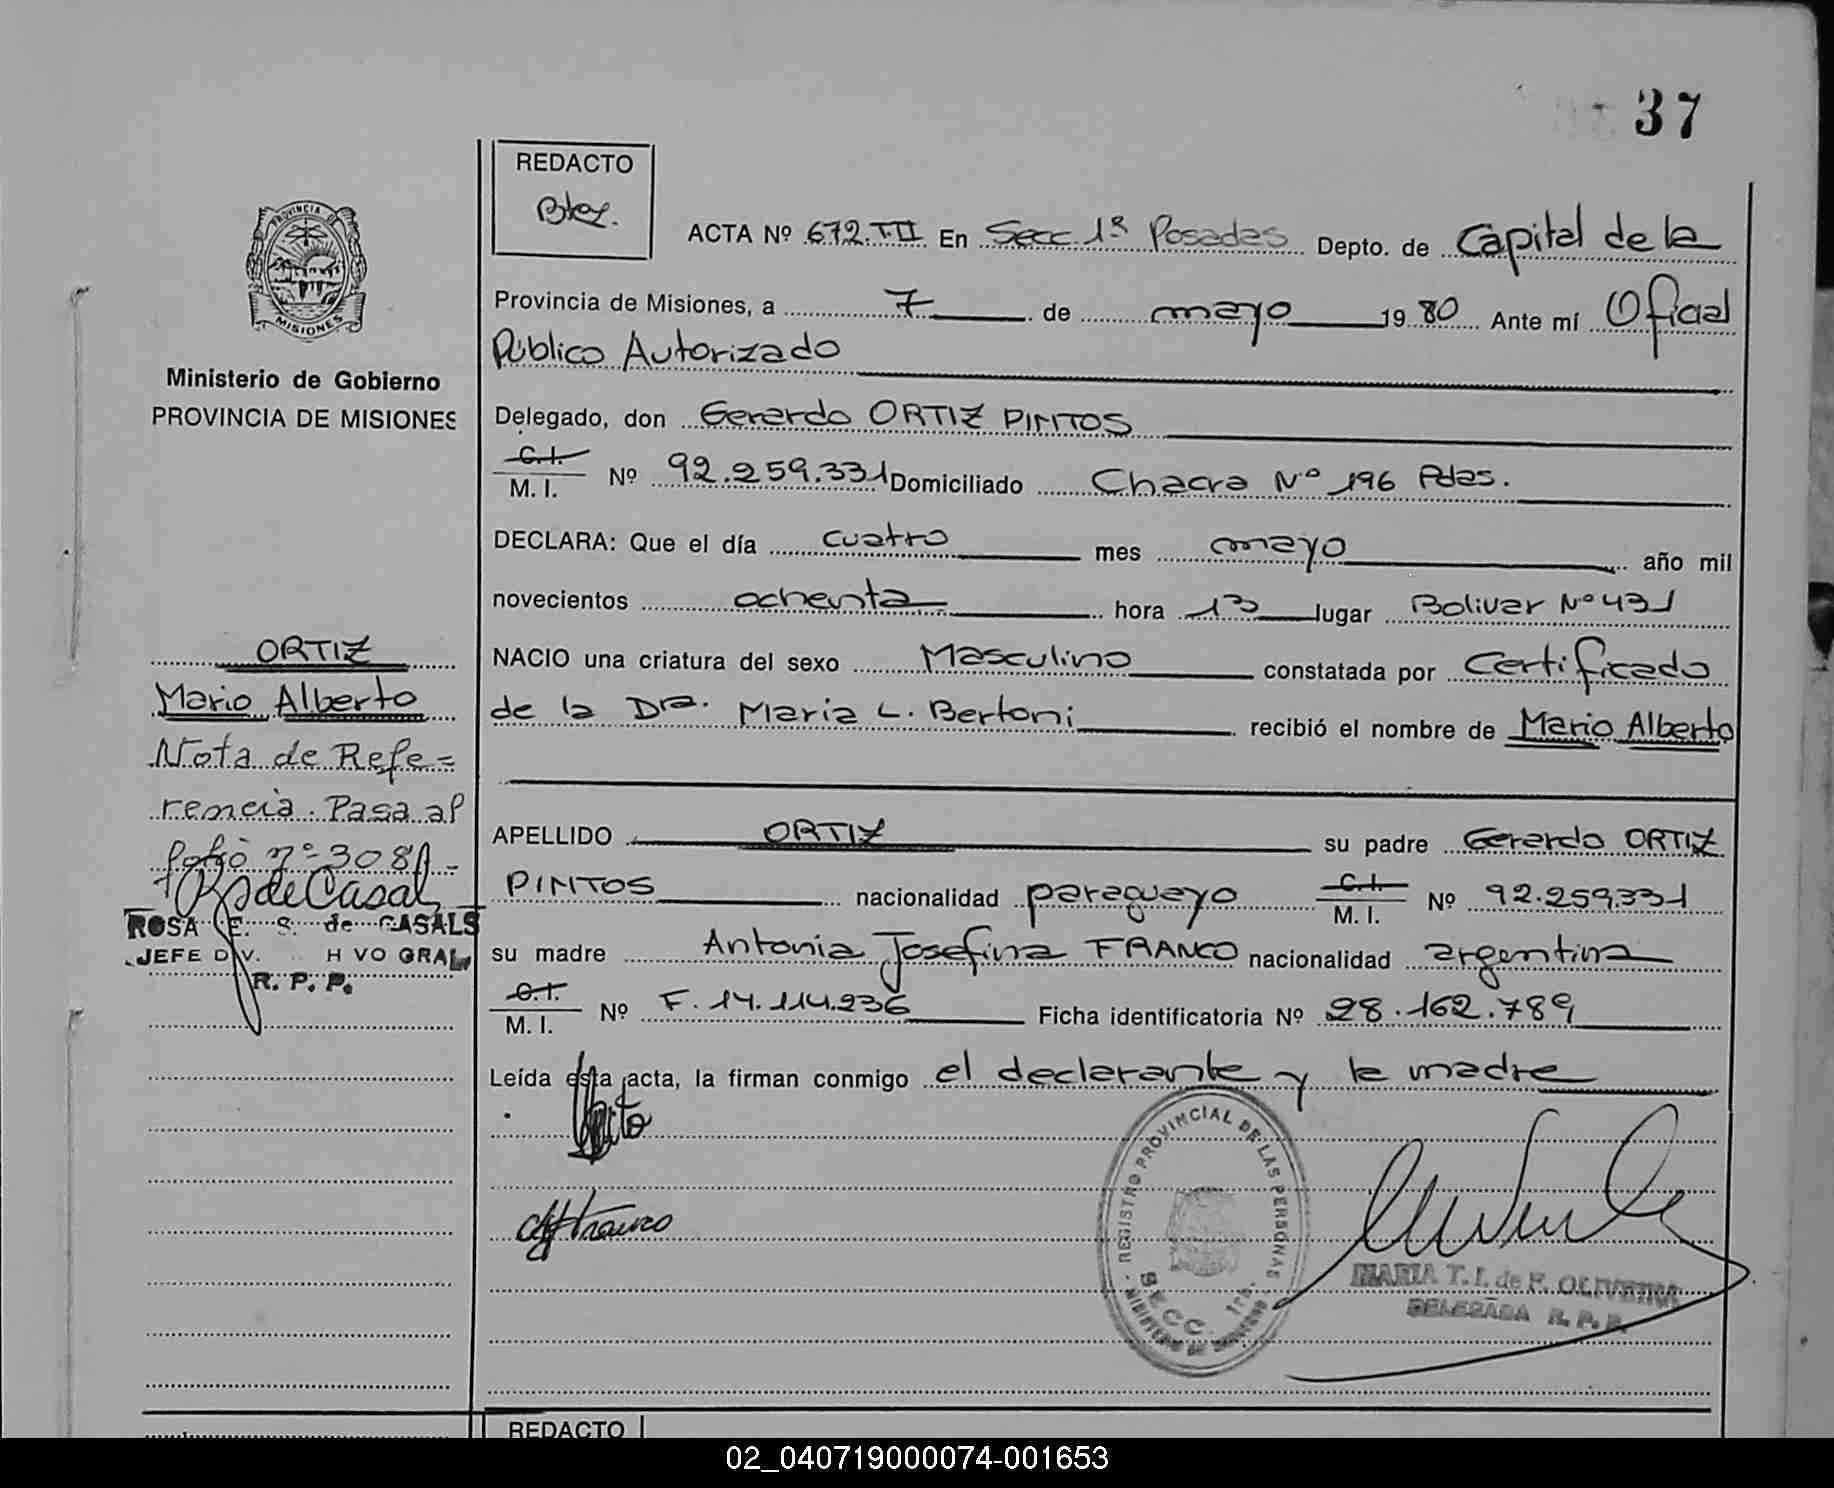 37
REDACTO
ACTA Nº 672.T.II En Secc. 1ª Posadas Depto. de Capital de la
Provincia de Misiones, a 7 de mayo 19 80 Ante mí Oficial
Público Autorizado
Delegado, don Gerardo ORTIZ PINTOS
C.I.
M. I. Nº 92.259.331 Domiciliado Chacra Nº 196 Pdas.
DECLARA: Que el día cuatro mes mayo año mil
novecientos ochenta hora 13 lugar Bolivar Nº 431
NACIO una criatura del sexo Masculino constatada por Certificado
de la Dra. Maria L. Bertoni recibió el nombre de Mario Alberto
APELLIDO ORTIZ su padre Gerardo ORTIZ
PINTOS nacionalidad paraguayo C.I. M. I. Nº 92.259.331
su madre Antonia Josefina FRANCO nacionalidad argentina
C.I.
M. I. Nº F. 14.114.236 Ficha identificatoria Nº 28.162.789
Leída esta acta, la firman conmigo el declarante y la madre
REGISTRO PROVINCIAL DE LAS PERSONAS
SECC. 1ra.
MINISTERIO DE GOBIERNO
MARIA T. I. de F. OLIVEIRA
DELEGADA R. P. P.
PROVINCIA DE
MISIONES
Ministerio de Gobierno
PROVINCIA DE MISIONES
ORTIZ
Mario Alberto
Nota de Refe=
rencia. Pasa al
folio nº 308
R S de Casal
ROSA E. S. de CASALS
JEFE DIV. H VO GRAL
R. P. P.
REDACTO
02_040719000074-001653